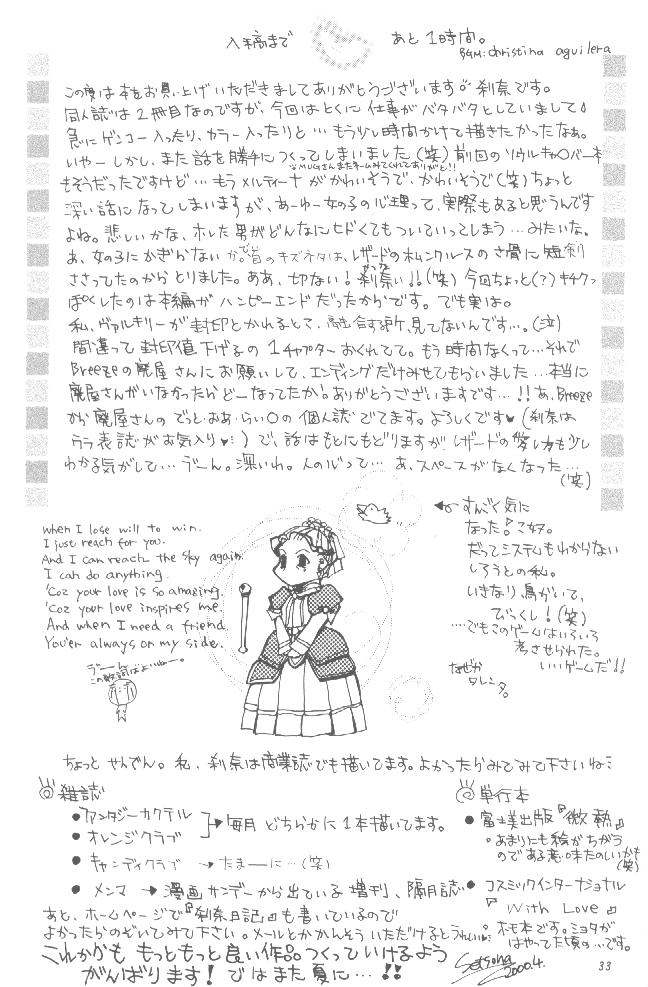 入稿まで あと1時間。
BGM: christina aguilera
この度は本をお買い上げいただきましてありがとうございます 刹奈です。
同人誌は2冊目なのですが、今回はとくに仕事がバタバタとしていまして
急にゲンコー入ったり、カラー入ったりと… もう少し時間かけて描きたかったなぁ。
いやー しかし、また話を勝手につくってしまいました(笑) 前回のソウルキャ○バー本
もそうだったですけど… もうメルティーナがかわいそうで、かわいそうで(笑) ちょっと
深い話になってしまいますが、あーゆー女の子の心理って、実際もあると思うんです
よね。悲しいかな、ホレた男がどんなにヒドくてもついていってしまう…みたいな。
あ、女の子にかぎらないか。で首のキズネタは、レザードのホムンクルスのさ骨に短剣
ささってたのからとりました。ああ、切ない! 刹奈い!!(笑) 今回ちょっと(?)キチクっ
ぽくしたのは本編がハッピーエンドだったからです。でも実は。
私、ヴァルキリーが封印とかれるとこ、融合する所、見てないんです…。(泣)
間違って封印値下げるの1チャプターおくれてて。もう時間なくって… それで
Breezeの廃屋さんにお願いして、エンディングだけみせてもらいました… 本当に
廃屋さんがいなかったらどーなってたか! ありがとうございますです…!! あ、Breeze
から廃屋さんのでっど・おあ・らい○の個人誌でてます。よろしくです♥ (刹奈は
うら表紙がお気入り♥) で、話はもとにもどりますが、レザードの愛し方も少し
わかる気がして… うーん。深いわ。人の心って… あ、スペースがなくなった…
(笑)
when I lose will to win.
I just reach for you.
And I can reach the sky again.
I can do anything.
'Coz your love is so amazing.
'Coz your love inspires me.
And when I need a friend
You'er always on my side.
うーん
この歌詞はよいねー。
すんごく気に
なった『乙奴。
だってシステムもわからない
しろうとの私。
いきなり鳥がいて、
びっくし!(笑)
…でもこのゲームはいろいろ
考させられた。
いいゲームだ!!
なぜか
タレ
ちょっと せんでん。私、刹奈は商業誌でも描いてます。よかったらみてみて下さいね
雑誌
• ファンタジーカクテル
• オレンジクラブ
→毎月どちらかに1本描いてます。
• キャンディクラブ → たまーーに…(笑)
• メンマ → 漫画サンデーから出ている増刊、隔月誌
単行本
• 富士美出版『微熱』
。あまりにも絵がちがう
のである意味たのしいかも
(笑)
• コスミックインターナショナル
『With Love』
。ホモ本です。ミヨタが
はやってた頃の…です。
あと、ホームページで『刹奈日記』も書いているので
よかったらのぞいてみて下さい。メールとかかんそういただけるとうれしい
これからも もっともっと良い作品つくっていけるよう
がんばります! ではまた夏に…!!
Setsuna
2000.4.
33